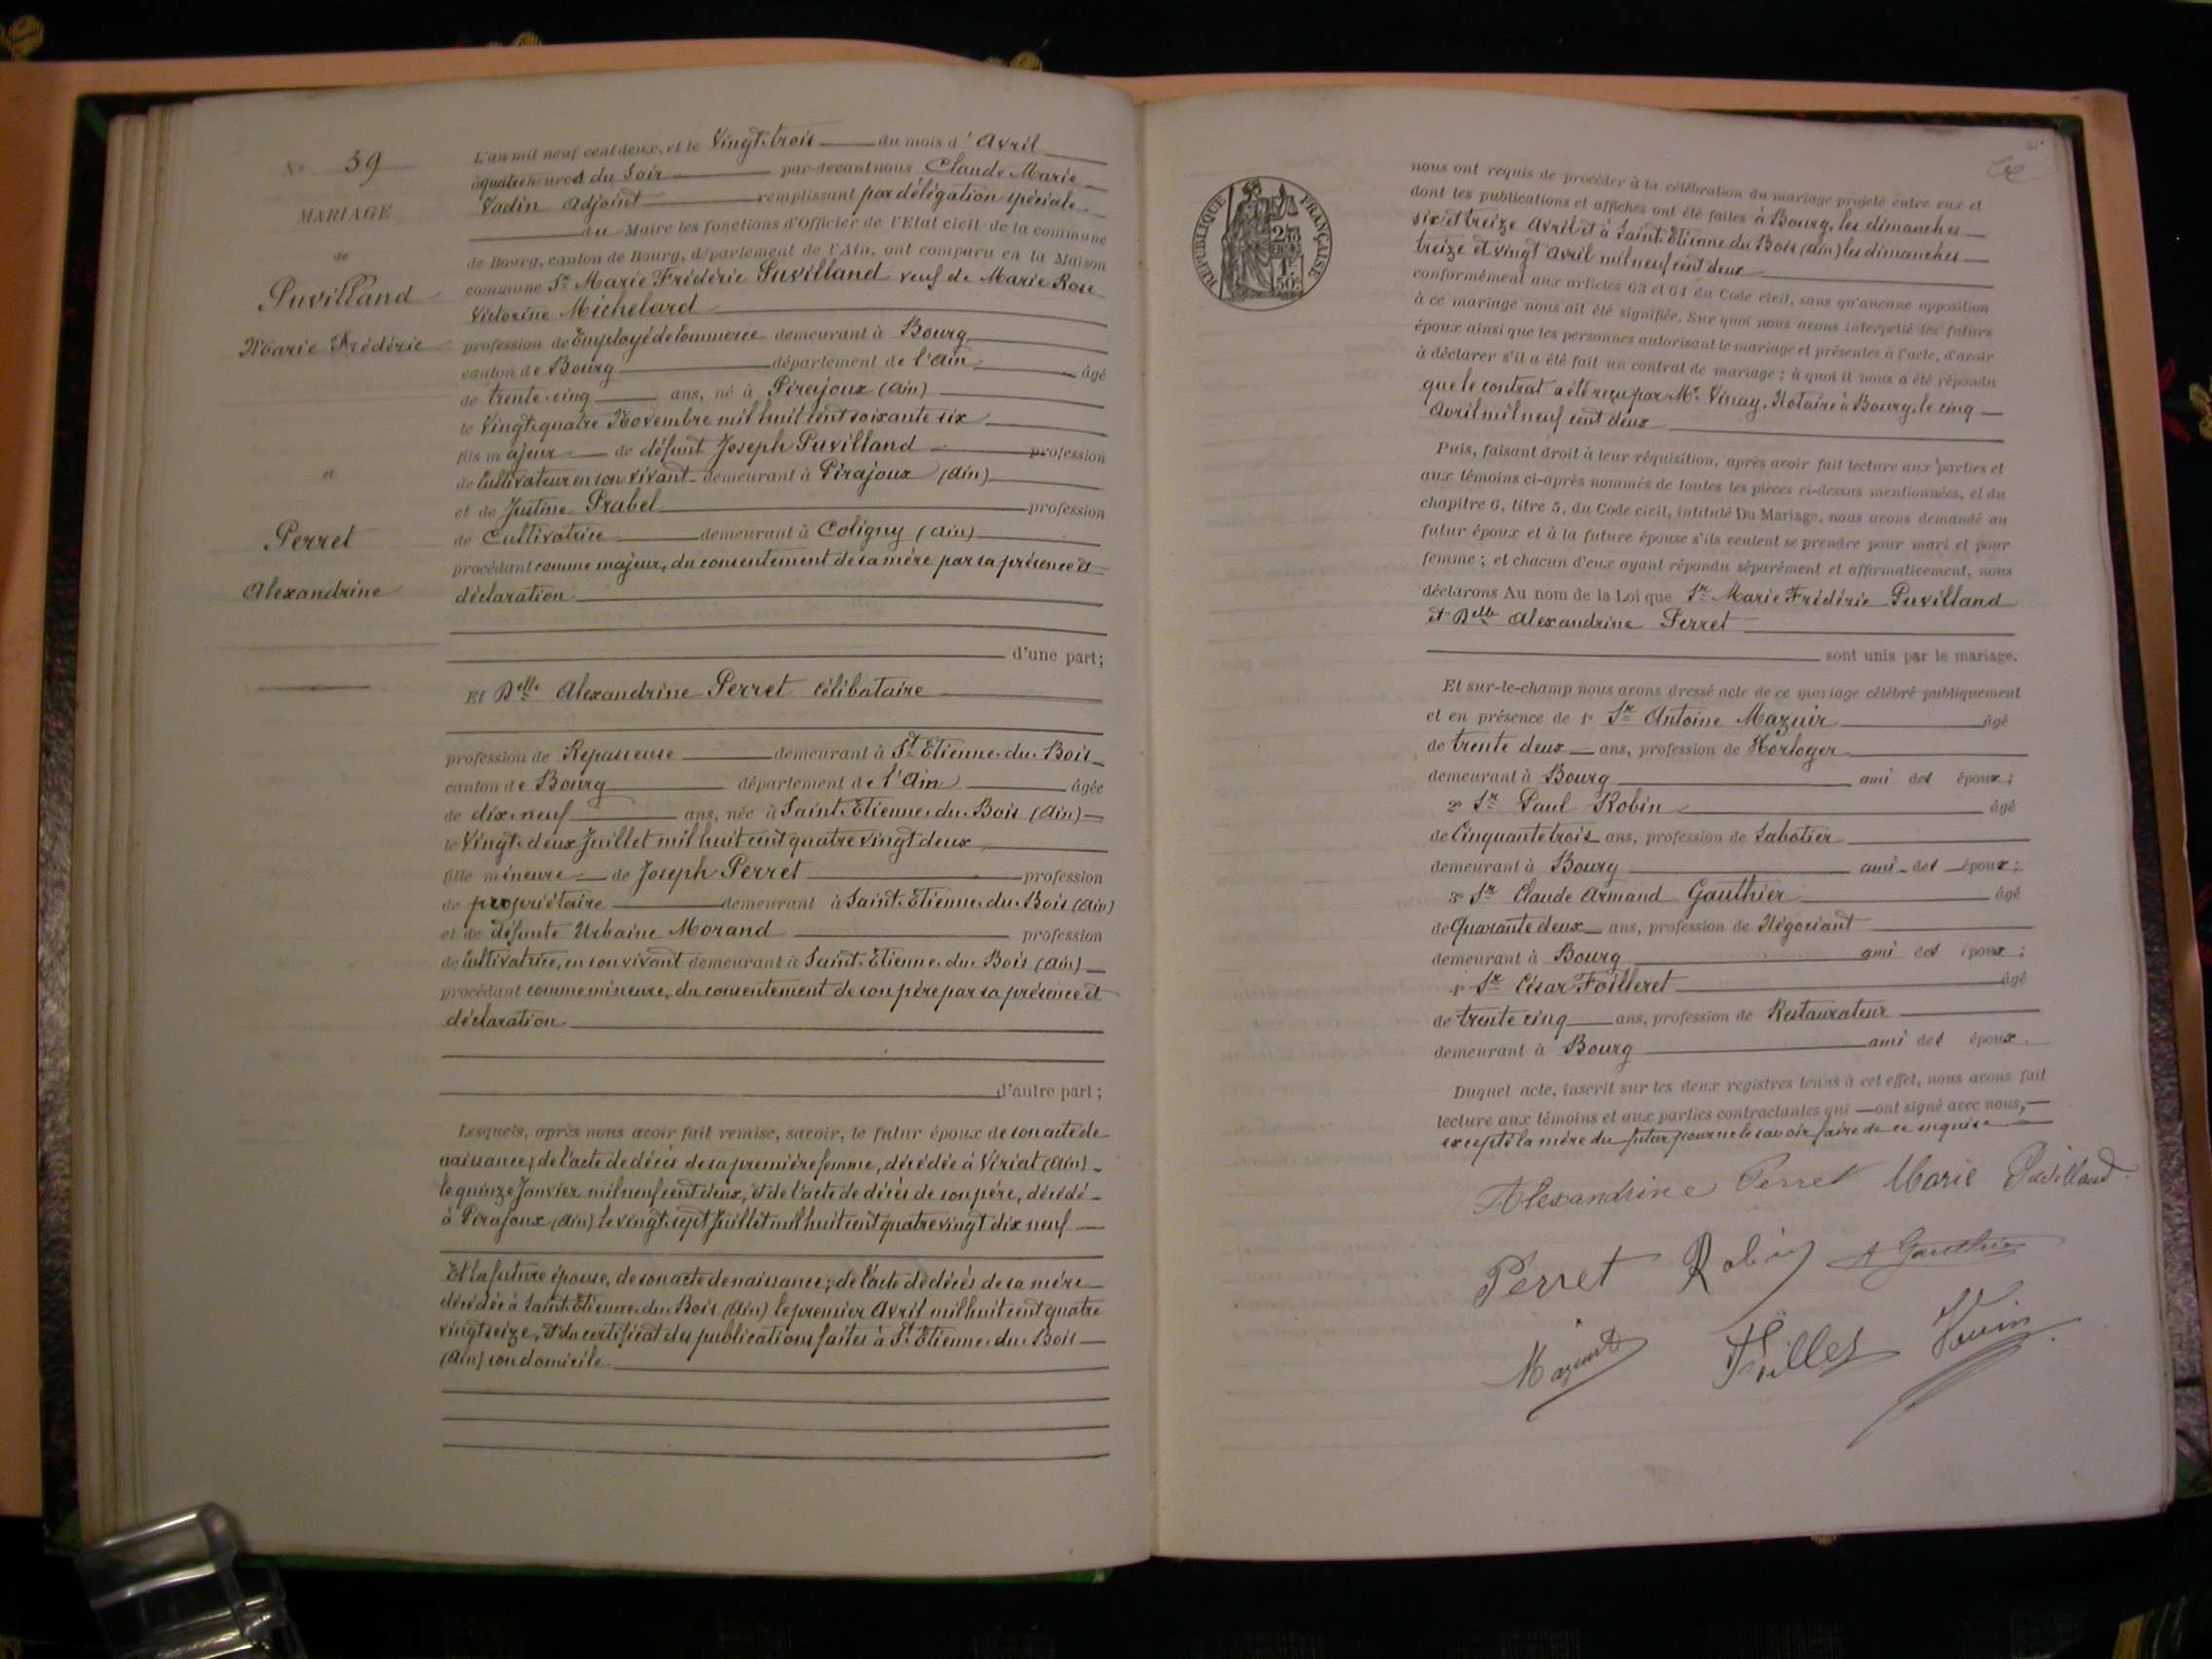 N° 39
MARIAGE
de
Puvilland
Marie Frédéric
et
Perret
Alexandrine
L'an mil neuf cent deux, et le Vingt-trois du mois d'Avril
à quatre heures du Soir par-devant nous Claude Marie
Vadin Adjoint remplissant par délégation spéciale
du Maire les fonctions d'Officier de l'Etat civil de la commune
de Bourg, canton de Bourg, département de l'Ain, ont comparu en la Maison
commune Sr Marie Frédéric Puvilland veuf de Marie Rose
Victorine Michelard
profession de Employé de Commerce demeurant à Bourg
canton de Bourg département de l'Ain âgé
de trente-cinq ans, né à Pirajoux (Ain)
le Vingt-quatre Novembre mil huit cent soixante six
fils majeur de défunt Joseph Puvilland profession
de Cultivateur en son vivant demeurant à Pirajoux (Ain)
et de Justine Prabel profession
de Cultivatrice demeurant à Coligny (Ain)
procédant comme majeur, du consentement de sa mère par sa présence et
déclaration
d'une part;
Et Delle Alexandrine Perret Célibataire
profession de Repasseuse demeurant à St Etienne-du-Bois
canton de Bourg département de l'Ain âgée
de dix-neuf ans, née à Saint-Etienne-du-Bois (Ain)
le Vingt-deux Juillet mil huit cent quatre vingt deux
fille mineure de Joseph Perret profession
de propriétaire demeurant à Saint-Etienne-du-Bois (Ain)
et de défunte Urbaine Morand profession
de Cultivatrice, en son vivant demeurant à Saint-Etienne-du-Bois (Ain)
procédant comme mineure, du consentement de son père par sa présence et
déclaration
d'autre part;
Lesquels, après nous avoir fait remise, savoir, le futur époux de son acte de
naissance; de l'acte de décès de sa première femme, décédée à Viriat (Ain)
le quinze Janvier mil neuf cent deux, et de l'acte de décès de son père, décédé
à Pirajoux (Ain) le vingt-sept Juillet mil huit cent quatre vingt dix neuf
Et la future épouse, de son acte de naissance; de l'acte de décès de sa mère
décédée à Saint-Etienne-du-Bois (Ain) le premier Avril mil huit cent quatre
vingt seize, et du certificat des publications faites à St Etienne-du-Bois
(Ain) son domicile
RÉPUBLIQUE FRANÇAISE
nous ont requis de procéder à la célébration du mariage projeté entre eux et
dont les publications et affiches ont été faites à Bourg, les dimanches
six et treize Avril et à Saint-Etienne du Bois (Ain) les dimanches
treize et vingt Avril mil neuf cent deux
conformément aux articles 63 et 64 du Code civil, sans qu'aucune opposition
à ce mariage nous ait été signifiée. Sur quoi nous avons interpellé les futurs
époux ainsi que les personnes autorisant le mariage et présentes à l'acte, d'avoir
à déclarer s'il a été fait un contrat de mariage; à quoi il nous a été répondu
que le contrat a été reçu par Me Vinay, Notaire à Bourg, le cinq
Avril mil neuf cent deux
Puis, faisant droit à leur réquisition, après avoir fait lecture aux parties et
aux témoins ci-après nommés de toutes les pièces ci-dessus mentionnées, et du
chapitre 6, titre 5, du Code civil, intitulé Du Mariage, nous avons demandé au
futur époux et à la future épouse s'ils veulent se prendre pour mari et pour
femme; et chacun d'eux ayant répondu séparément et affirmativement, nous
déclarons Au nom de la Loi que Sr Marie Frédéric Puvilland
et Delle Alexandrine Perret
sont unis par le mariage.
Et sur-le-champ nous avons dressé acte de ce mariage célébré publiquement
et en présence de 1° Sr Antoine Mazuir âgé
de trente deux ans, profession de Horloger
demeurant à Bourg ami des époux;
2° Sr Paul Robin âgé
de Cinquante trois ans, profession de Sabotier
demeurant à Bourg ami des époux;
3° Sr Claude Armand Gauthier âgé
de Quarante deux ans, profession de Négociant
demeurant à Bourg ami des époux;
4° Sr César Foilleret âgé
de trente cinq ans, profession de Restaurateur
demeurant à Bourg ami des époux.
Duquel acte, inscrit sur les deux registres tenus à cet effet, nous avons fait
lecture aux témoins et aux parties contractantes qui ont signé avec nous,
excepté la mère du futur pour ne le savoir faire de ce enquise
Alexandrine Perret Marie Puvilland
Perret Robin A Gauthier